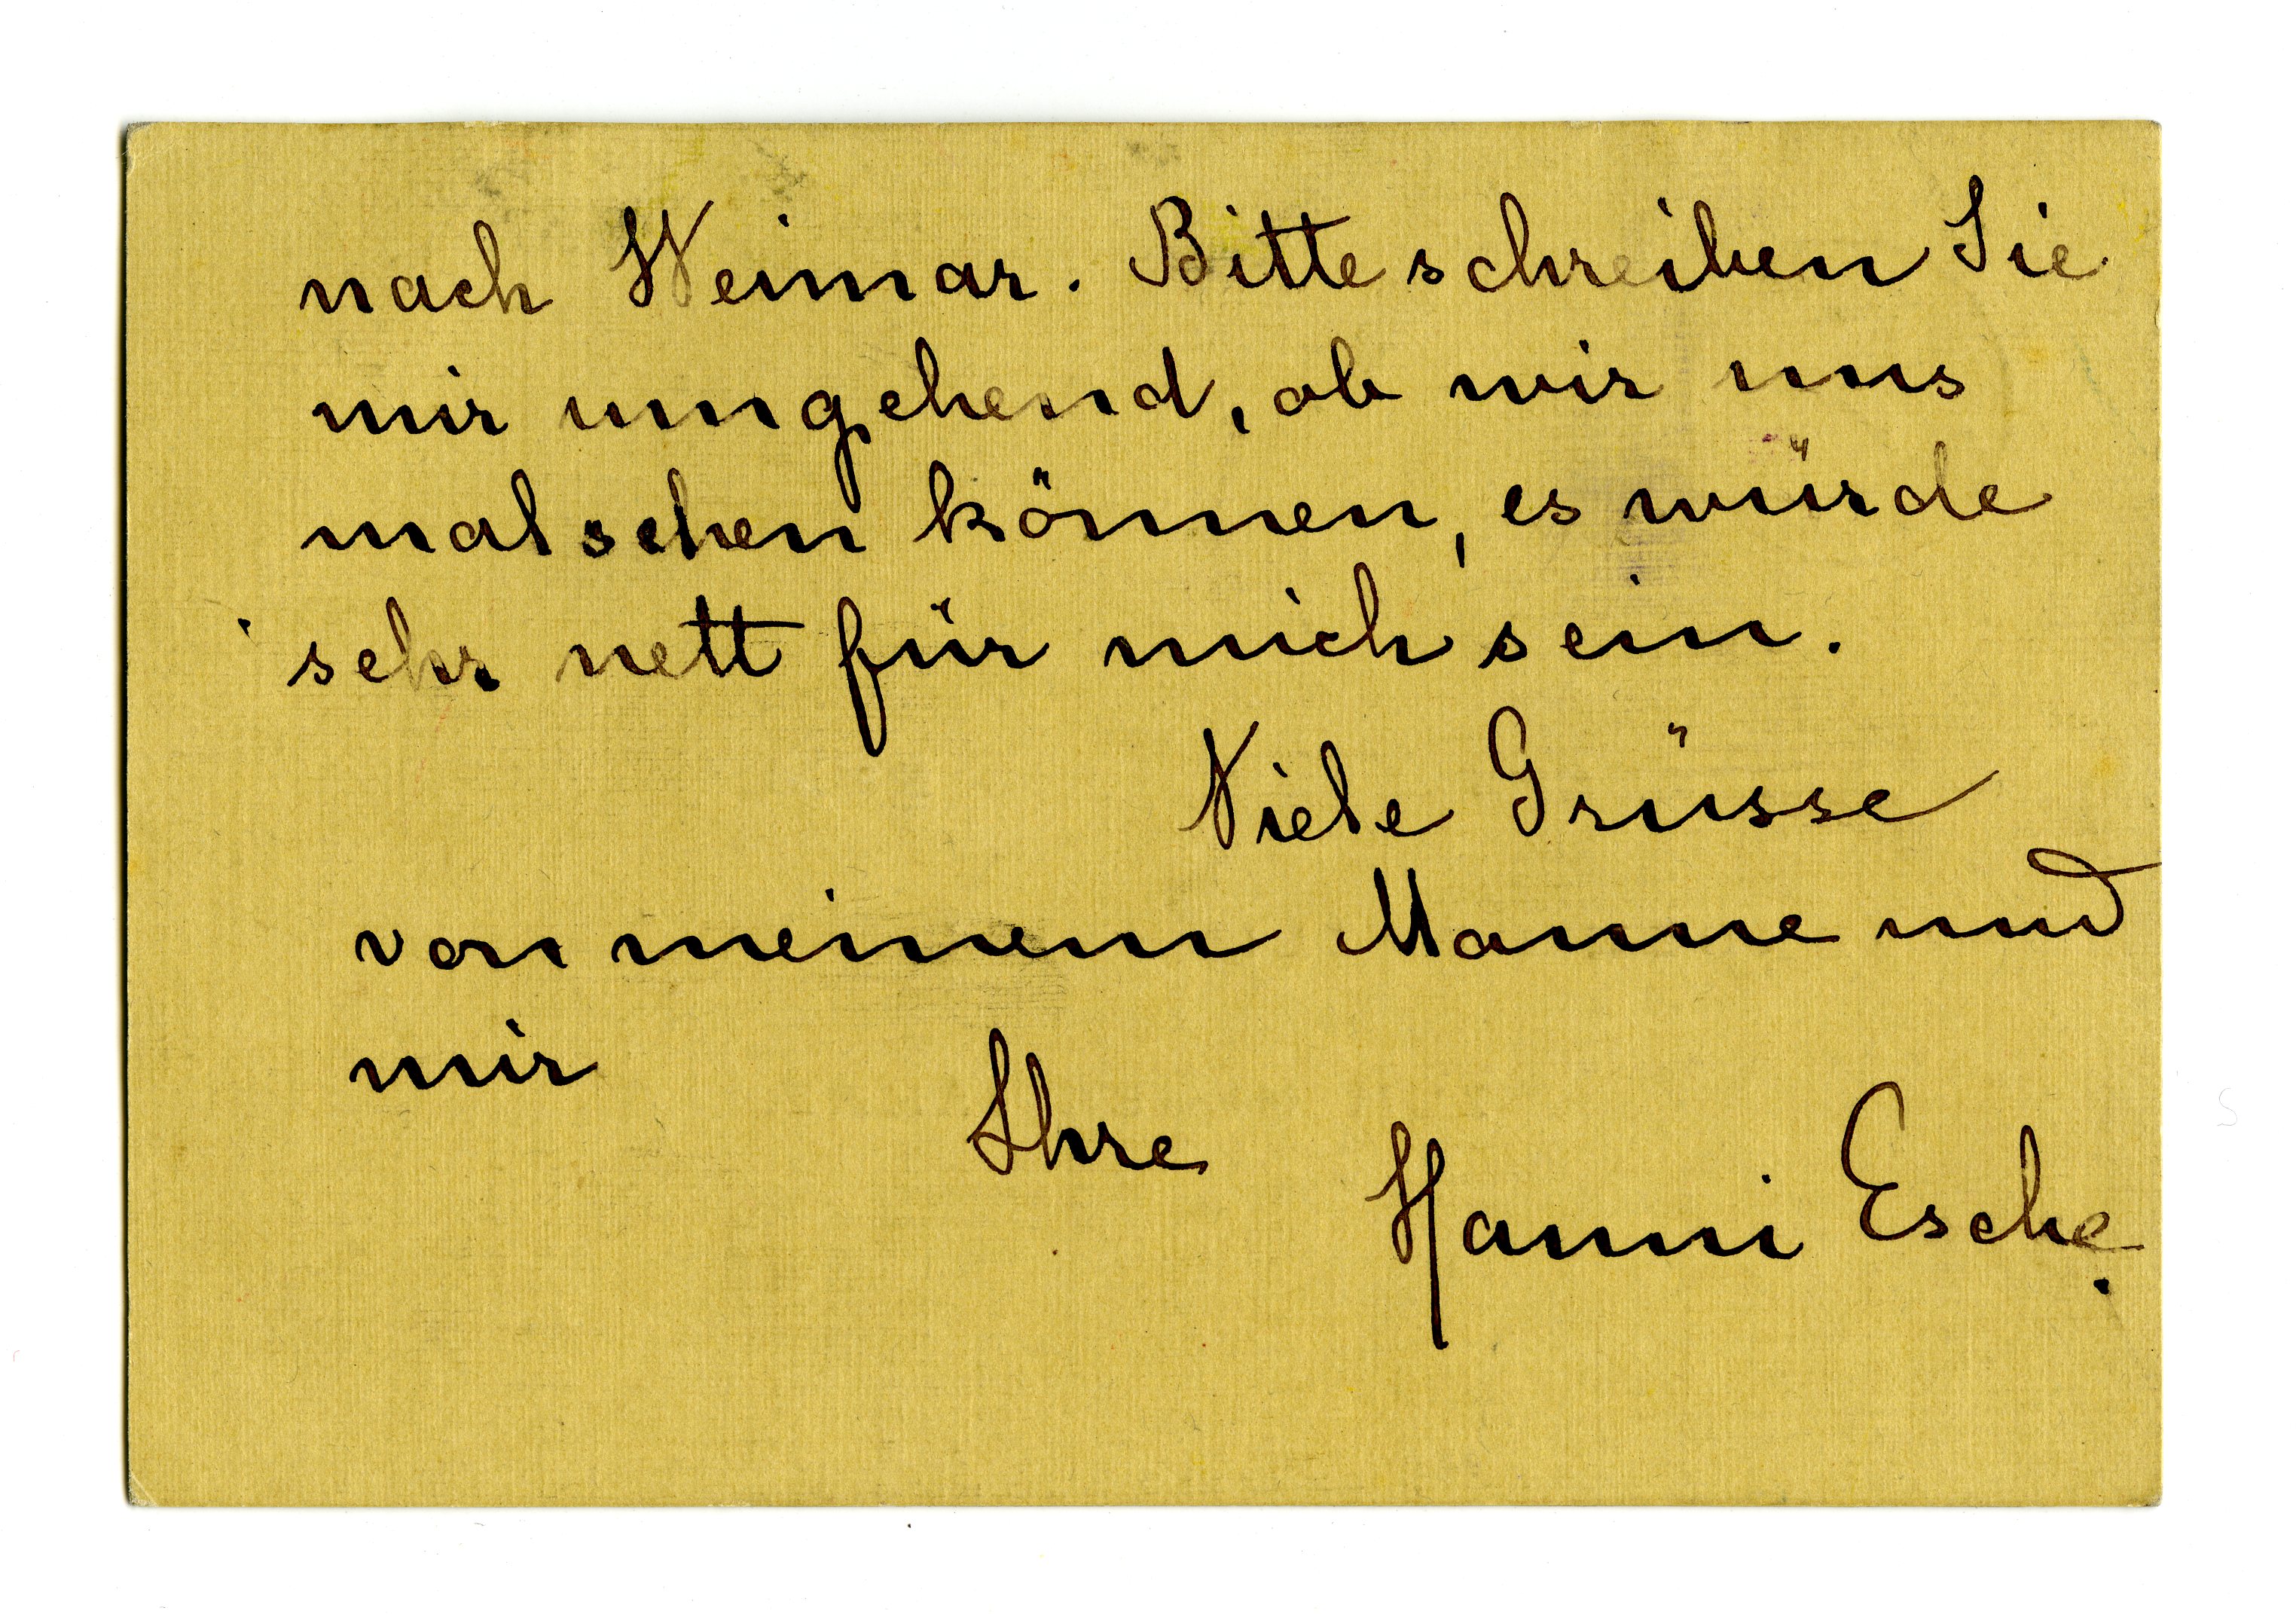 nach Weimar. Bitte schreiben Sie
mir umgehend, ob wir uns
mal sehen können, es würde
sehr nett für mich sein.
Viele Grüsse
von meinem Manne und
mir
Ihre
Hanni Esche.